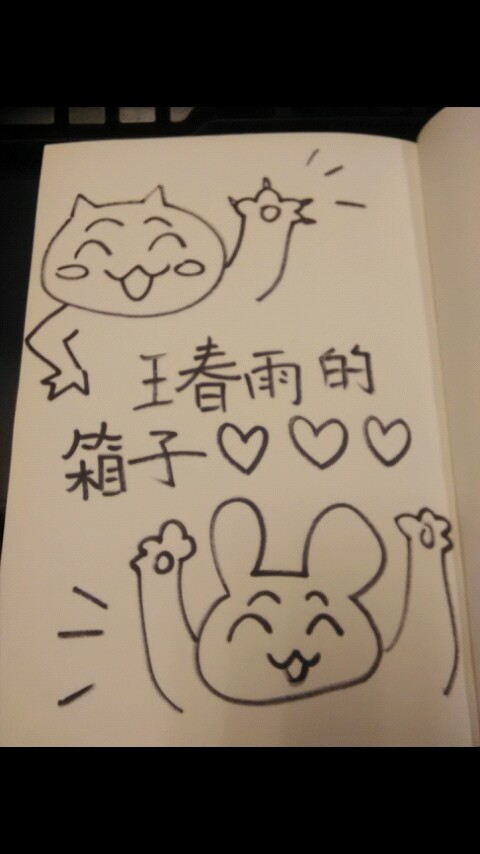 王春雨的
箱子♡♡♡